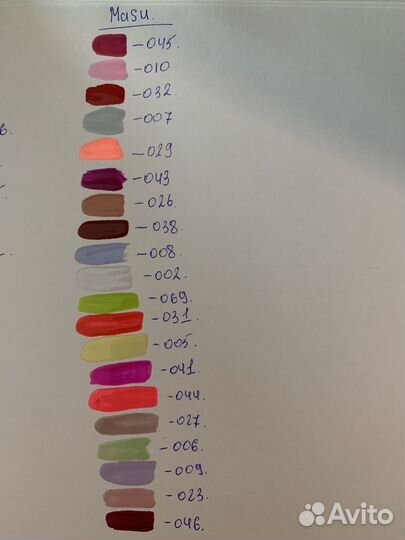 Masu.
-045.
-010
-032.
-007
-029
-043
-026.
-038.
-008
-002.
-069.
-031.
-005.
-041.
-044.
-027.
-006.
-009.
-023.
-046.
Avito